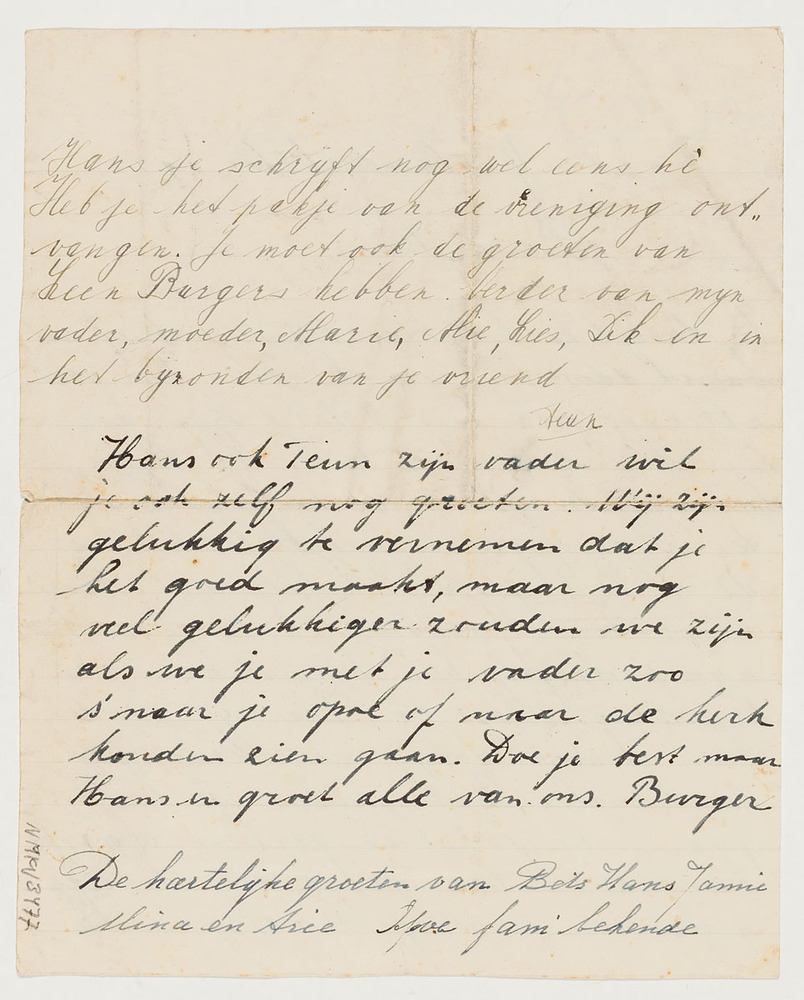 Hans je schrijft nog wel eens hè
Heb je het pakje van de vereniging ont„
vangen. Je moet ook de groeten van
Leen Burgers hebben. Verder van mijn
vader, moeder, Marie, Alie, Lies, Dik en in
het bijzonder van je vriend
Teun
Hans ook Teun zijn vader wil
je ook zelf nog groeten. Wij zijn
gelukkig te vernemen dat je
het goed maakt, maar nog
veel gelukkiger zouden we zijn
als we je met je vader zoo
s'naar je opoe of naar de kerk
konden zien gaan. Doe je best maar
Hans en groet alle van ons. Burger
De hartelijke groeten van Bets Hans Jannie
Mina en Arie fam bekende
NMKV3477